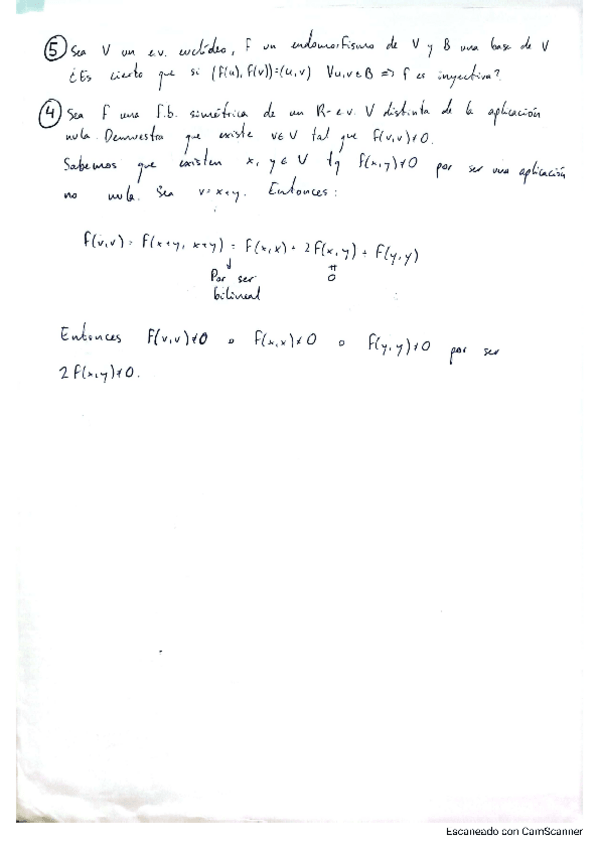 ⑤ Sea V un e.v. euclídeo, f un endomorfismo de V y B una base de V
¿Es cierto que si (f(u), f(v))=(u,v) ∀u,v∈B => f es inyectiva?
④ Sea f una f.b. simétrica de un R-e.v. V distinta de la aplicación
nula. Demuestra que existe v∈V tal que f(v,v)≠0.
Sabemos que existen x, y∈V tq f(x,y)≠0 por ser una aplicación
no nula. Sea v=x+y. Entonces:
f(v,v)= f(x+y, x+y) = f(x,x)+2f(x,y)+f(y,y)
↓ ≠
Por ser 0
bilineal
Entonces f(v,v)≠0 o f(x,x)≠0 o f(y,y)≠0 por ser
2f(x,y)≠0.
Escaneado con CamScanner